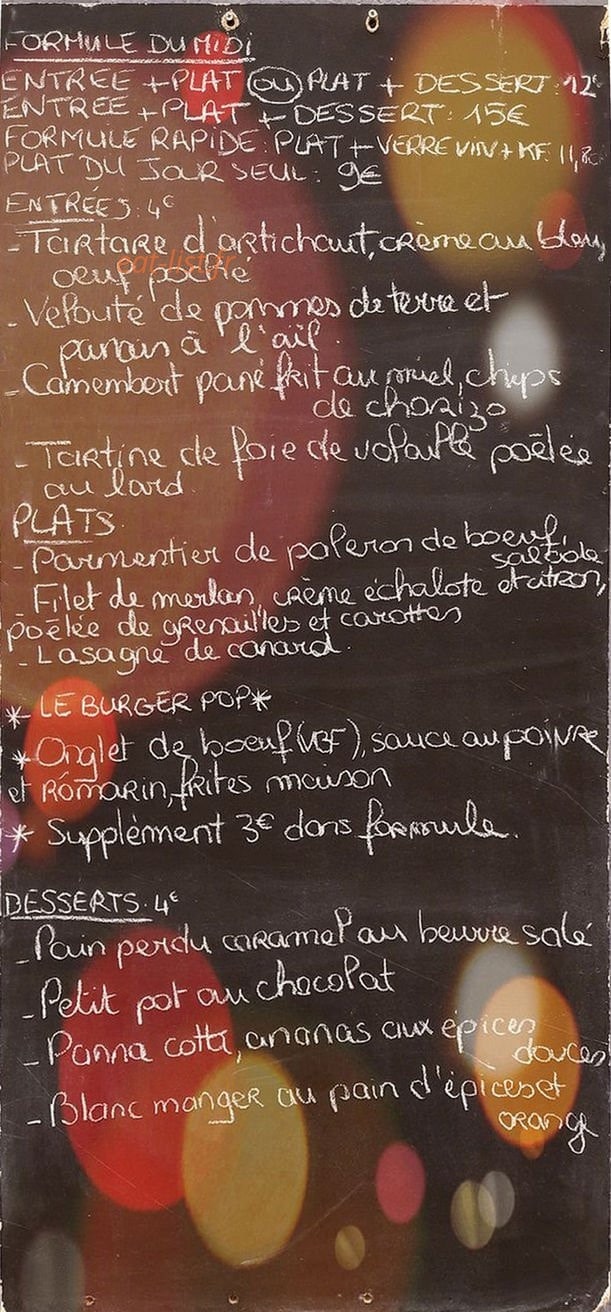 FORMULE DU MIDI
ENTREE + PLAT OU PLAT + DESSERT: 12€
ENTREE + PLAT + DESSERT: 15€
FORMULE RAPIDE: PLAT + VERRE VIN + KF: 11,80
PLAT DU JOUR SEUL: 9€
ENTRÉES: 4€
- Tartare d'artichaut, crème au bleu,
oeuf poché
eat-list.fr
- Velouté de pommes de terre et
panais à l'ail.
- Camembert pané frit au miel, chips
de chorizo
- Tartine de foie de volaille poêlée
au lard.
PLATS.
- Parmentier de paleron de boeuf,
salade
- Filet de merlan, crème échalote et citron,
poêlée de grenailles et carottes
- Lasagne de canard.
* LE BURGER POP *
* Onglet de boeuf (VBF), sauce au poivre
et Romarin, frites maison
* Supplément 3€ dans formule.
DESSERTS. 4€
- Pain perdu caramel au beurre salé
- Petit pot au chocolat
- Panna cotta, ananas aux épices
douces
- Blanc manger au pain d'épices et
orange